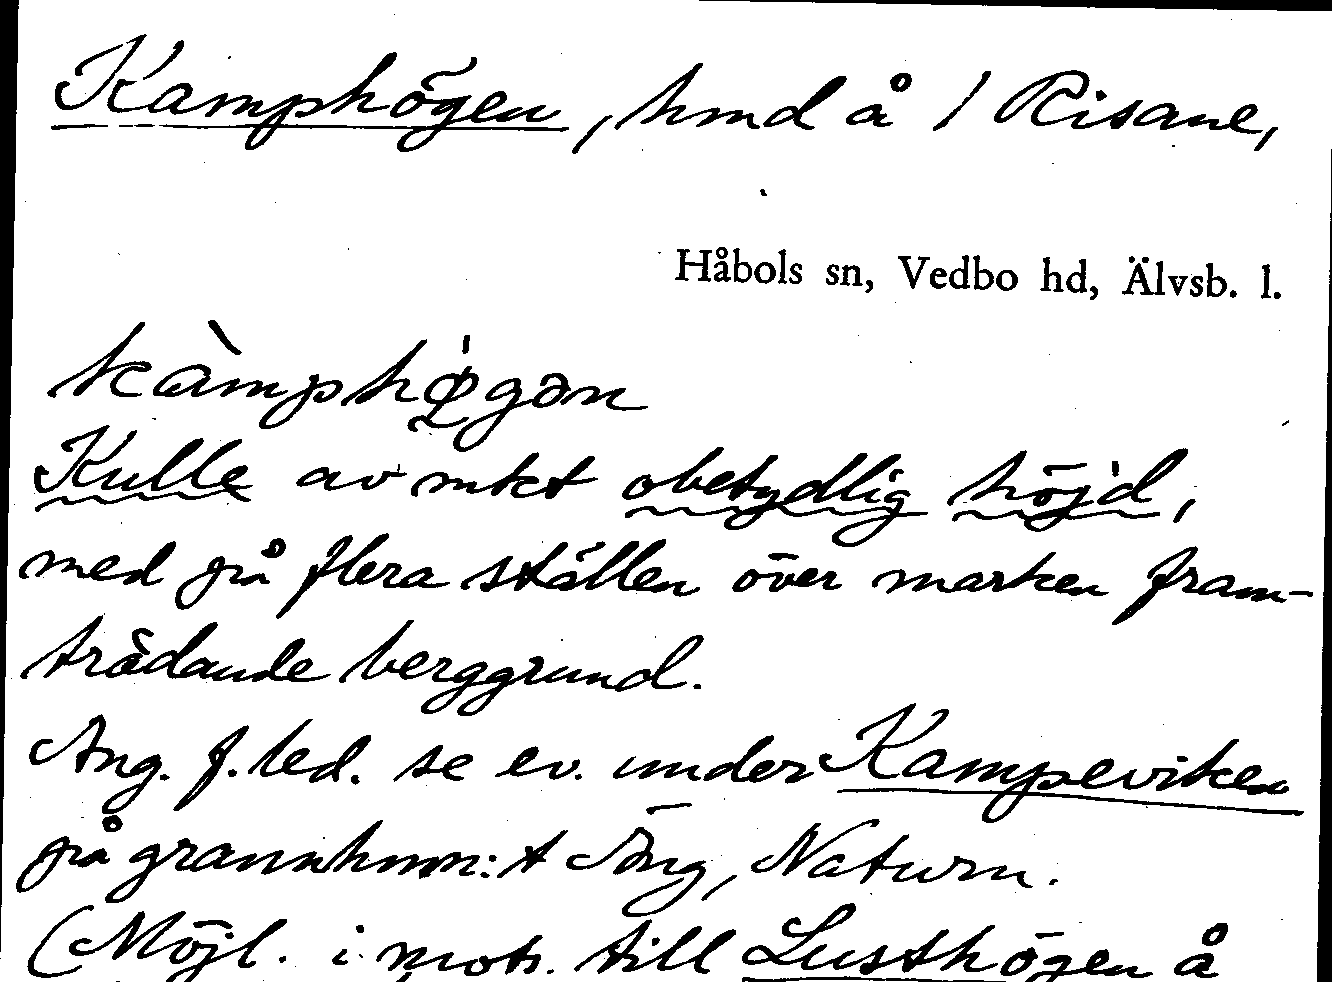 Kamphögen, hmd å / Risane,
Håbols sn, Vedbo hd, Älvsb. l.
kàmphǿ̜gən
Kulle av mkt obetydlig höjd,
med på flera ställen över marken fram-
trädande berggrund.
Ang. f. led. se ev. under Kampeviken
på grannhmn:t Äng, Naturn.
(Möjl. i mots. till Lusthögen å